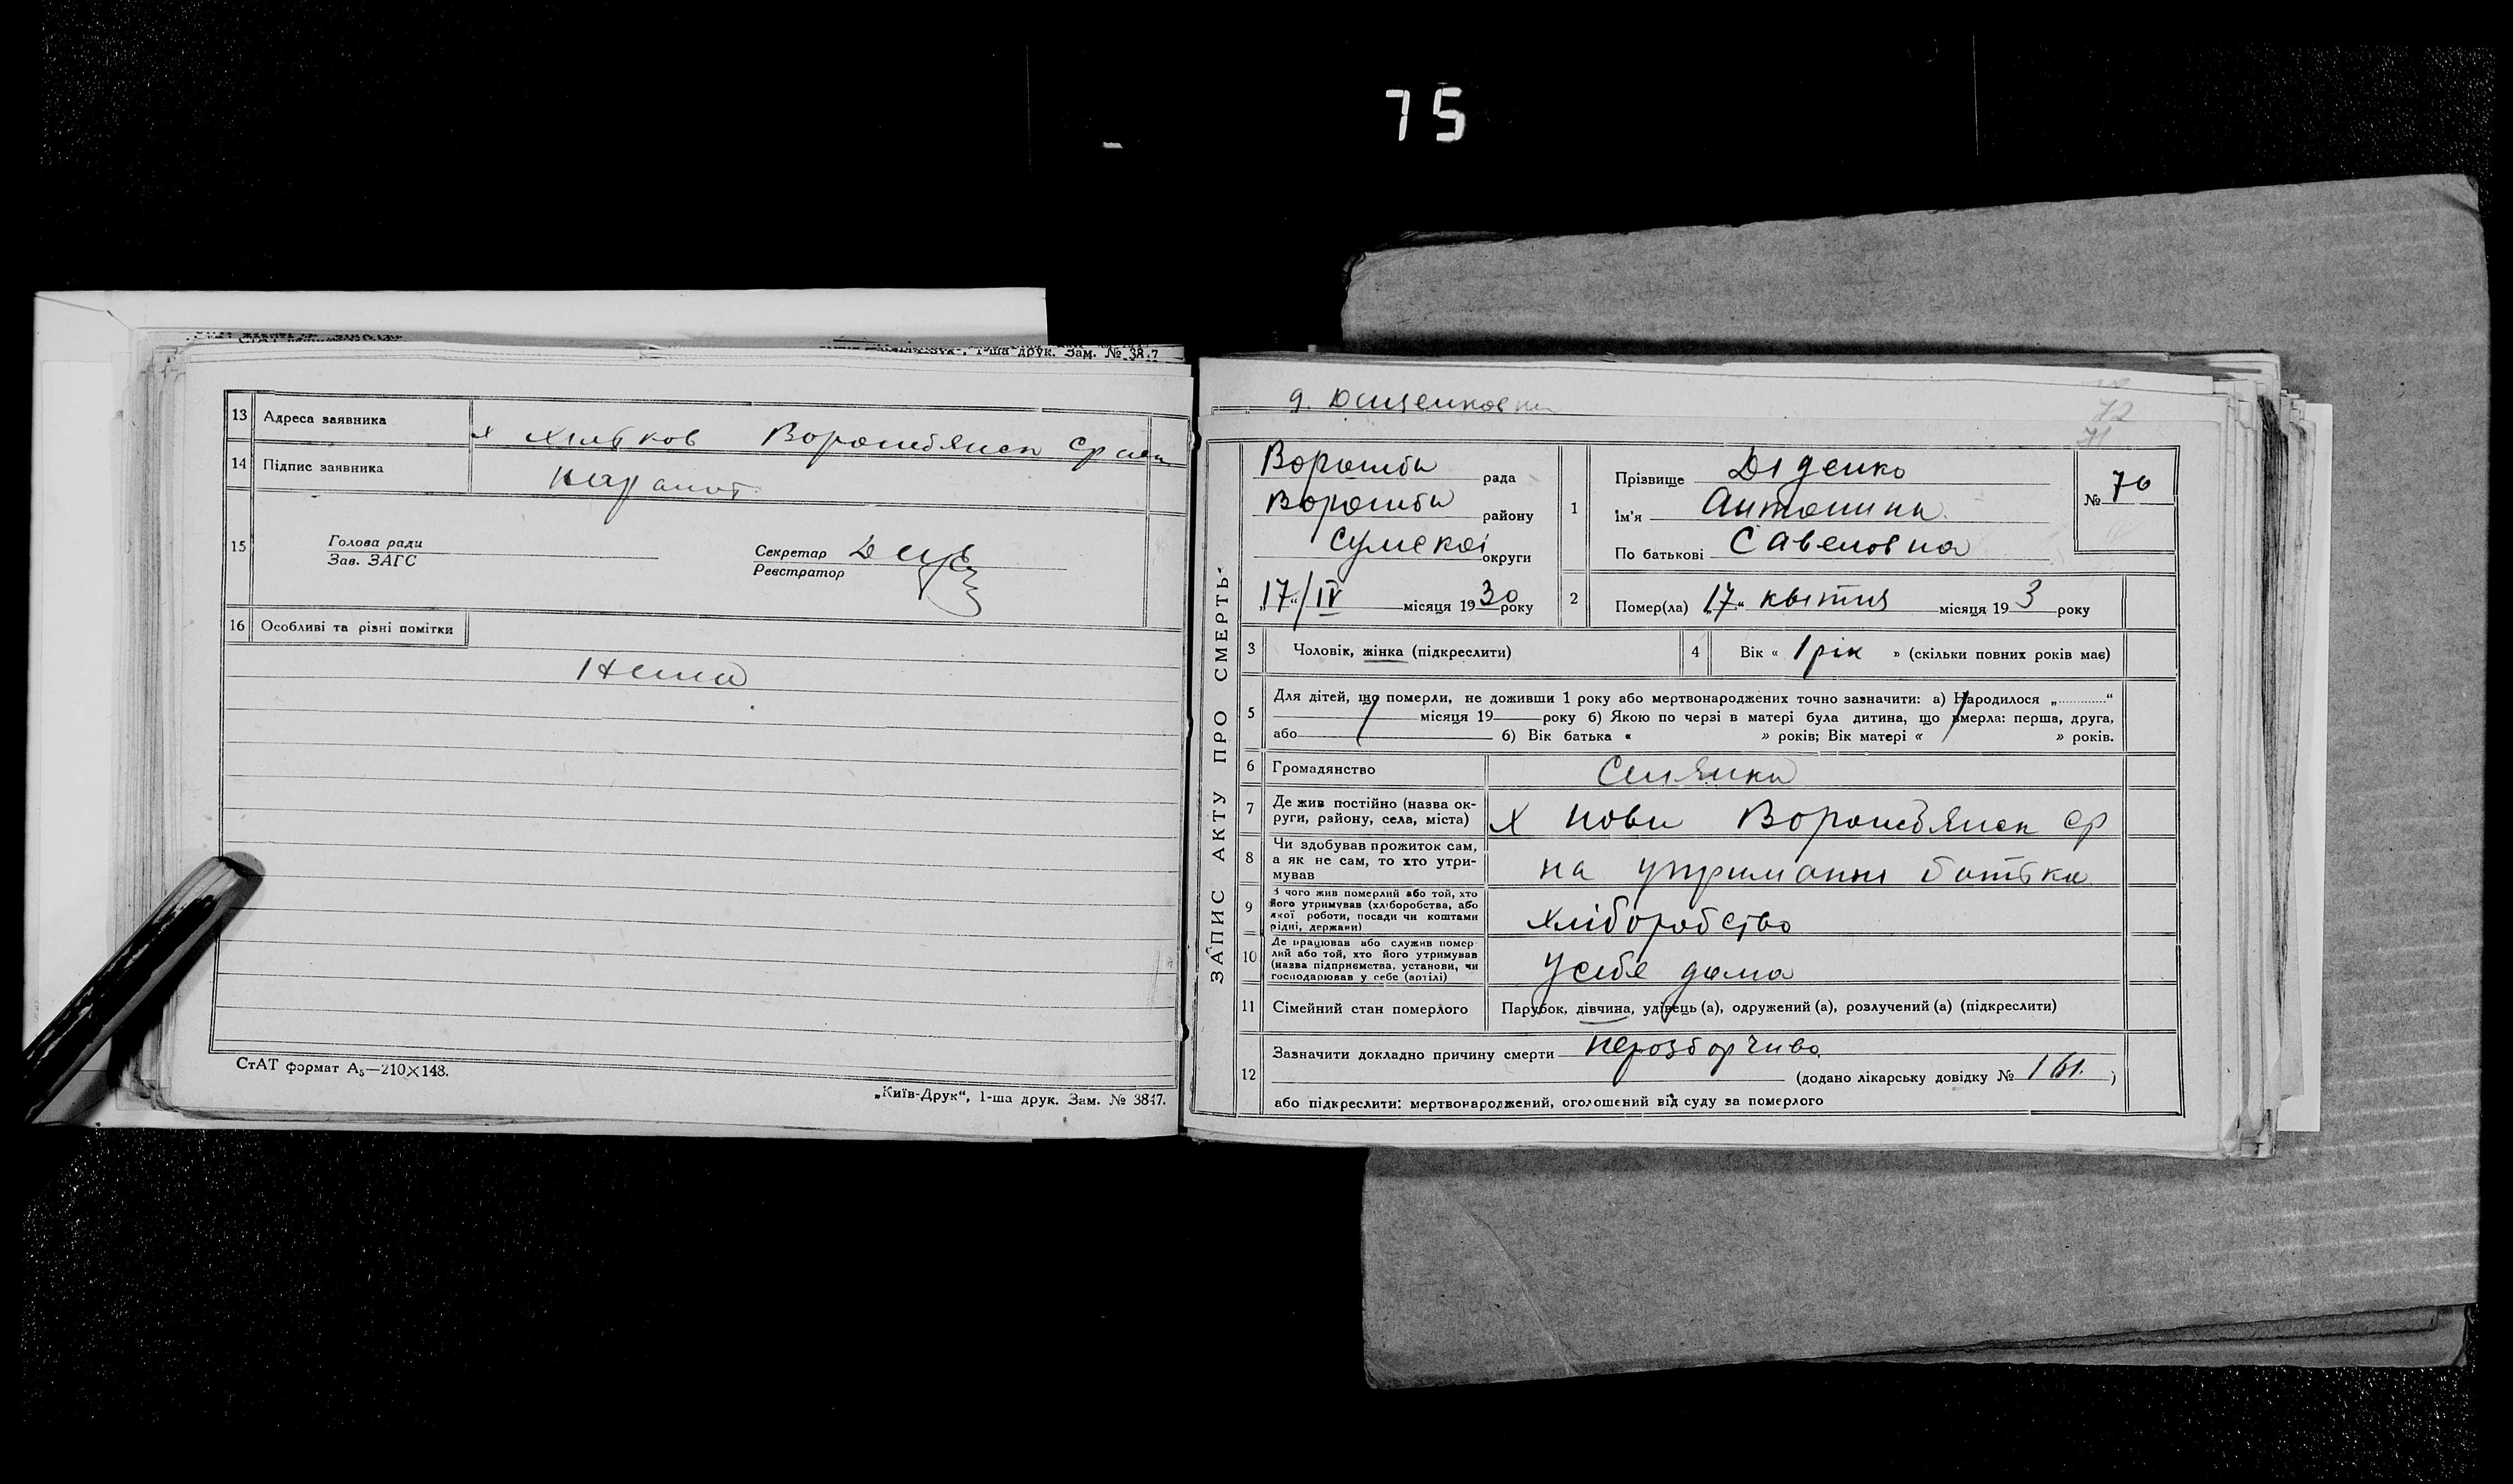 75
1-ша друк. Зам. № 3847
13 Адреса заявника х Хилвков Ворожбянск Ср
14 Підпис заявника
15 Голова ради
Зав. ЗАГС
Секретар
Реєстратор
16 Особливі та різні помітки
Нема
СтАТ формат А5—210×148.
„Київ-Друк“, 1-ша друк. Зам. № 3847.
ЗАПИС АКТУ ПРО СМЕРТЬ
72
71
Ворожби рада
Ворожби району
Сумской округи
„17“/IV місяця 1930 року
1 Прізвище Діденко
Ім'я Антонина
По батькові Савеловна
№ 70
2 Помер(ла) „17“ квітня місяця 193 року
3 Чоловік, жінка (підкреслити)
4 Вік « 1 рік » (скільки повних років має)
5 Для дітей, що померли, не доживши 1 року або мертвонароджених точно зазначити: а) Народилося „............“
місяця 19 року б) Якою по черзі в матері була дитина, що вмерла: перша, друга,
або б) Вік батька « » років; Вік матері « » років.
6 Громадянство Силянка
7 Де жив постійно (назва ок-
руги, району, села, міста) х Нови Ворожбянск ср
8 Чи здобував прожиток сам,
а як не сам, то хто утри-
мував на утриманні батька
9 З чого жив померлий або той, хто
його утримував (хліборобства, або
якої роботи, посади чи коштами
рідні, держави) хліборобство
10 Де працював або служив помер
лий або той, хто його утримував
(назва підприємства, установи, чи
господарював у себе (артілі) у себя дома
11 Сімейний стан померлого Парубок, дівчина, удівець (а), одружений (а), розлучений (а) (підкреслити)
12 Зазначити докладно причину смерти неразборчиво
(додано лікарську довідку № 161. )
або підкреслити: мертвонароджений, оголошений від суду за померлого